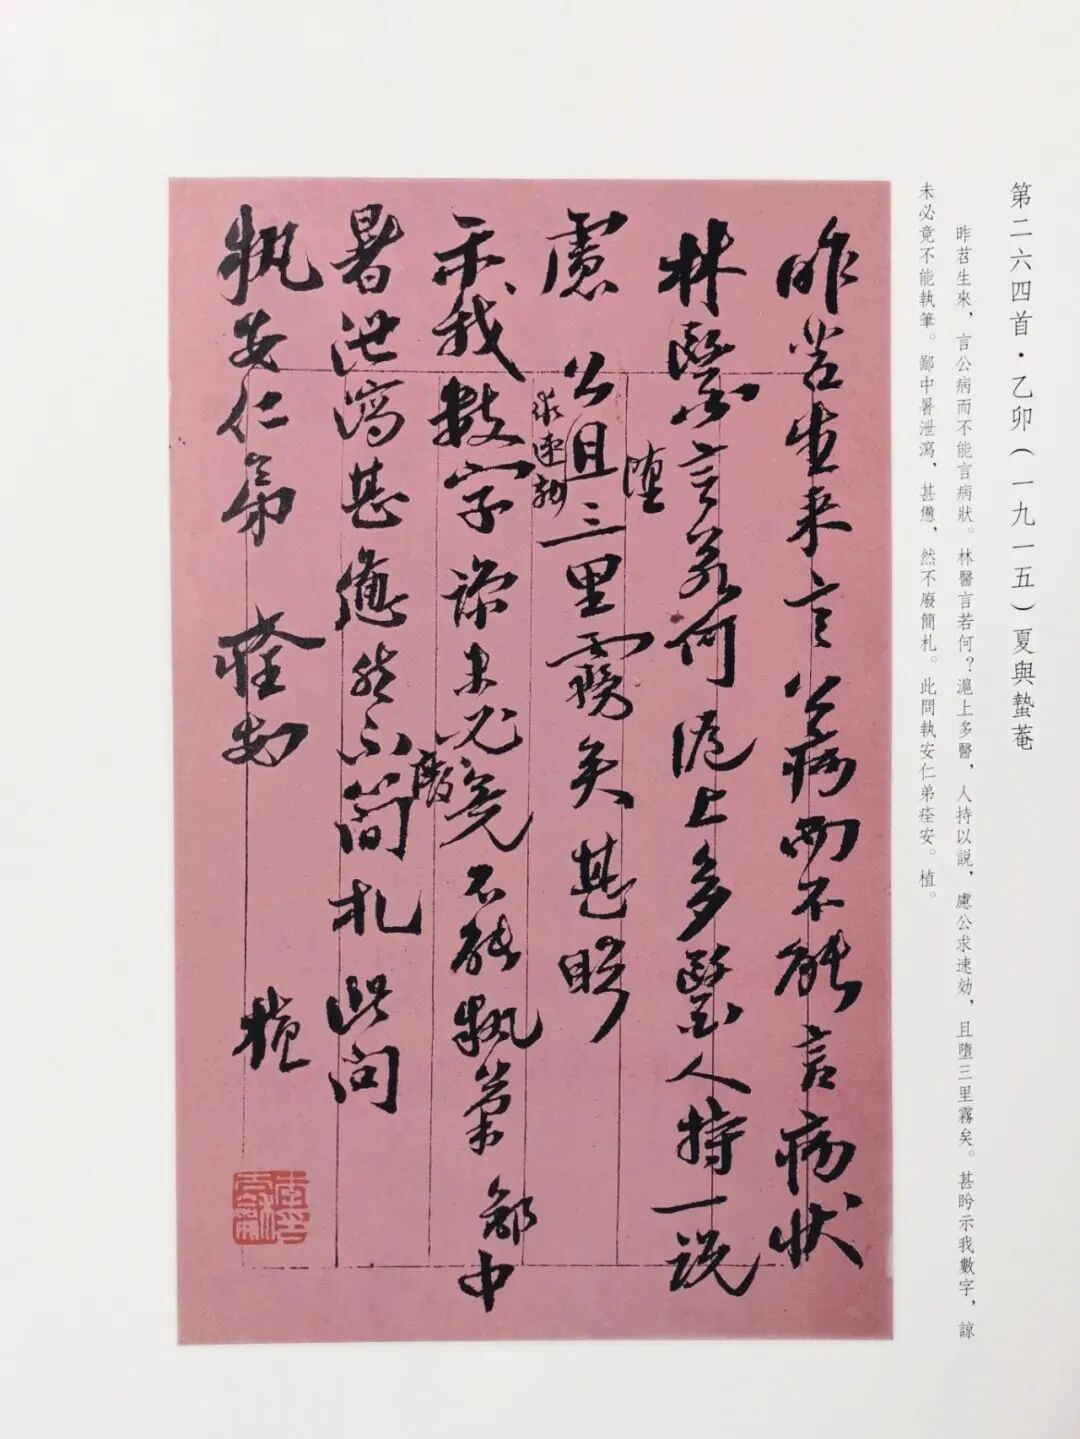 第二六四首·乙卯(一九一五)夏與蟄菴
昨苕生來,言公病而不能言病狀。林醫言若何?滬上多醫,人持以説,慮公求速効,且墮三里霧矣。甚盻示我數字,諒
未必竟不能執筆。鄙中暑泄瀉,甚憊,然不廢簡札。此問執安仁弟痊安。植。
昨苕生来言公病而不能言病状
林醫言若何滬上多醫人持一说
墮
慮公且三里霧矣甚盻
求速効
示我數字諒未必竟不能执筆鄙中
暑泄瀉甚憊然不簡札此问
廢
执安仁弟痊安植